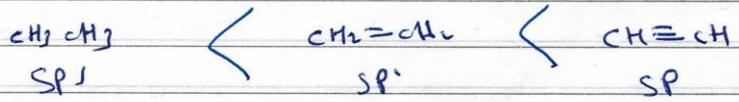 CH3 CH3 < CH2=CH2 < CH≡CH
SP3 SP2 SP